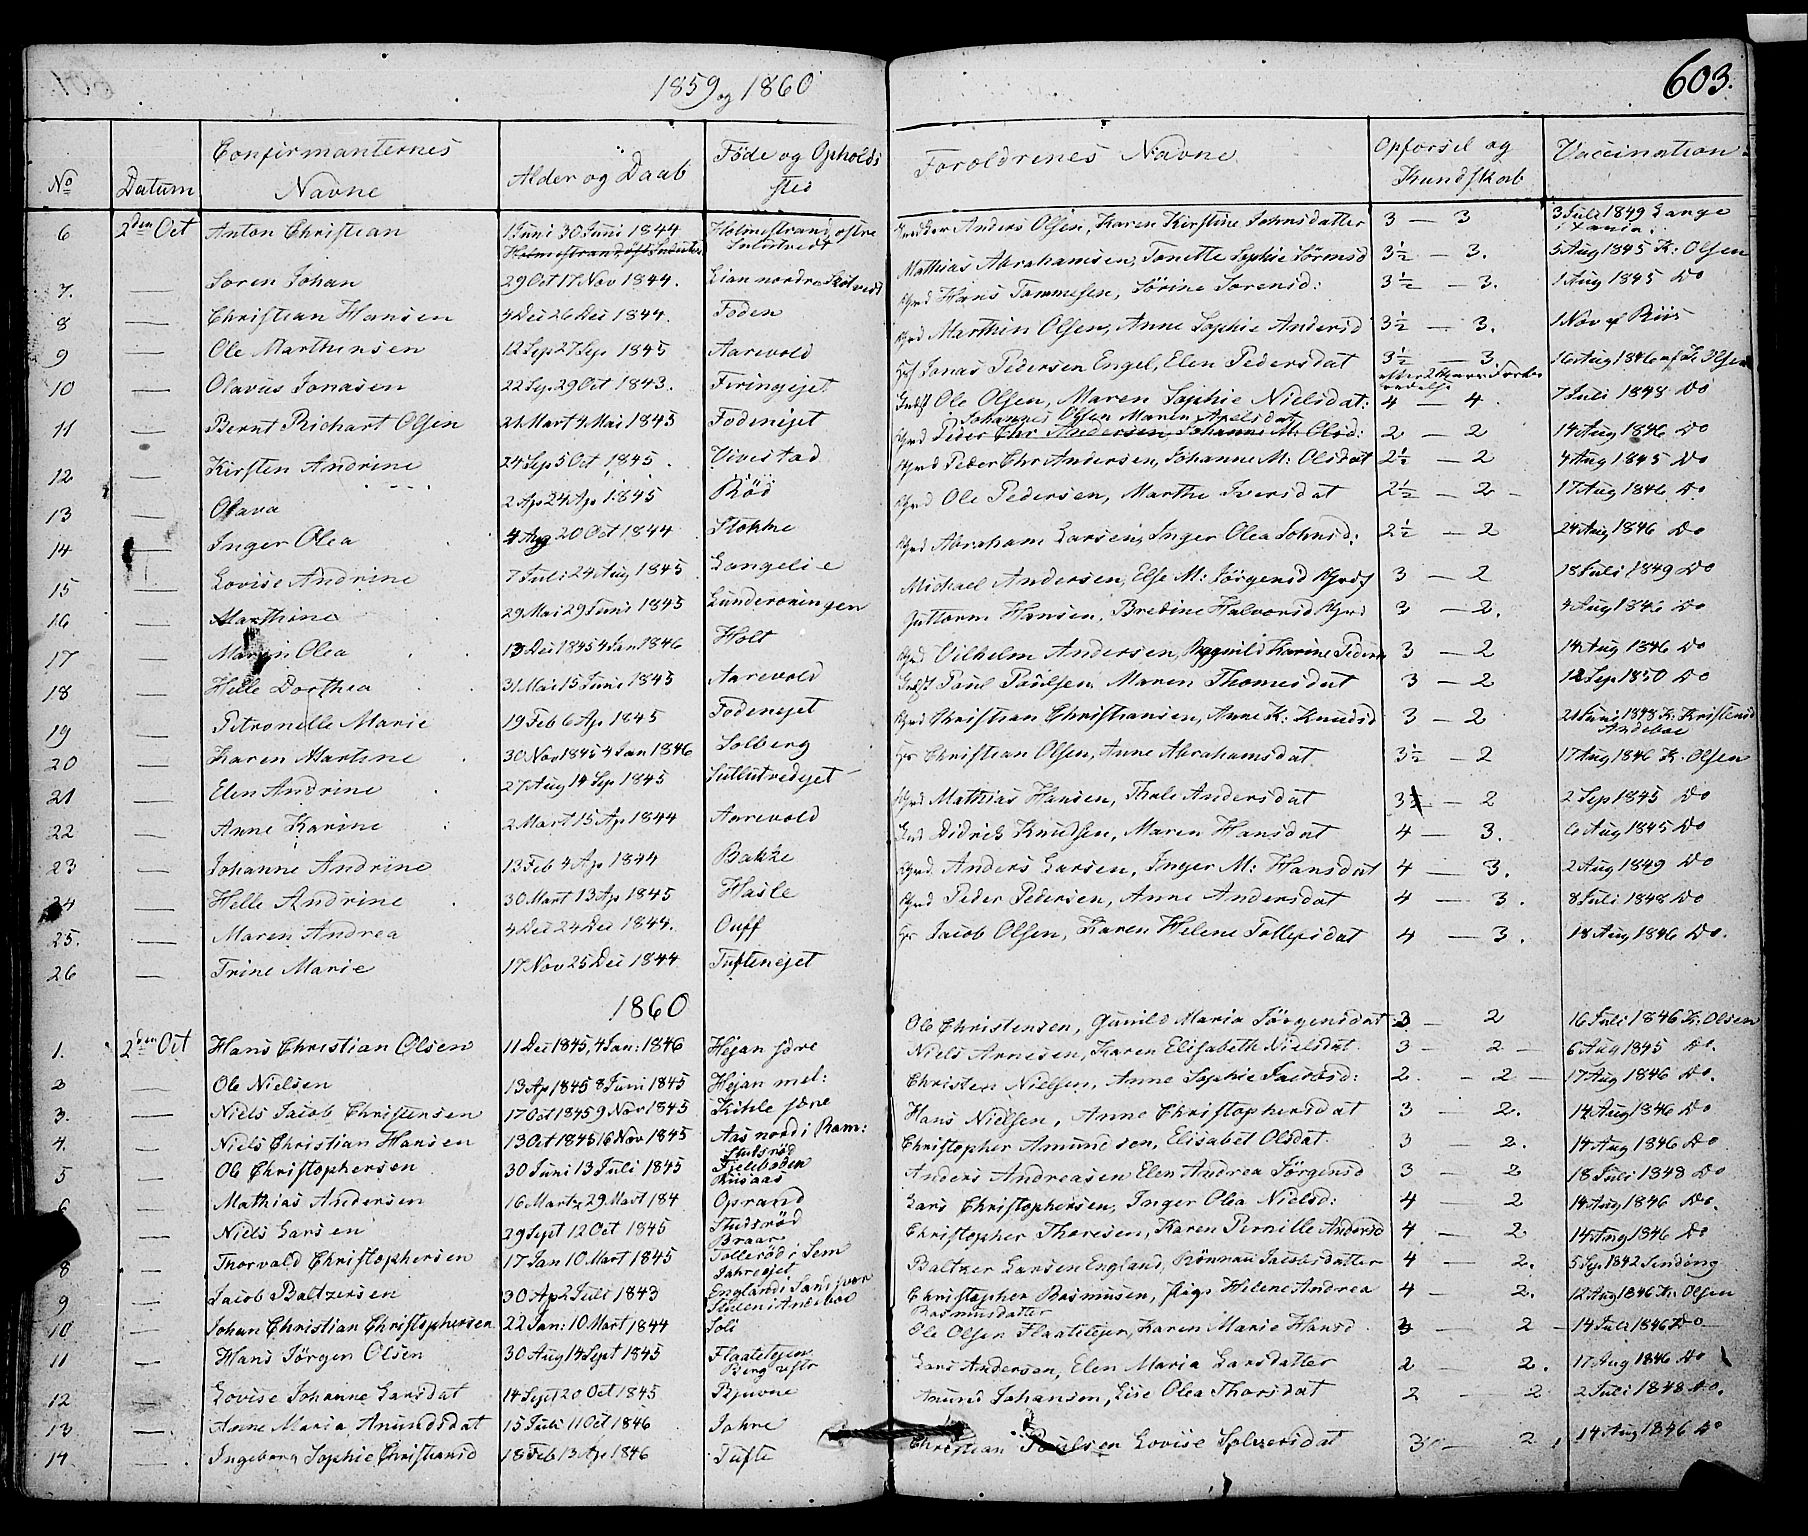 1859 og 1860
603.
No Datum Confirmanternes Navne Alder og Daab Føde og Opholds sted Forældrenes Navne Opførsel og Kundskab Vaccination
6 2den Oct Anton Christian 1 Juni 30 Juni 1844 Holmestrand, østre Anders Olsen, Karen Kirstine Johnsdatter 3 — 3 3 Juli 1849 Lange
7. — Søren Johan 29 Oct 17 Nov 1844. Lian nordre Mathias Abrahamsen, Tonette Sophie 3½ — 3. 5 Aug 1845 K: Olsen
8 — Christian Hansen 4 Dec 26 Dec 1844. Foden Hans Tommesen, Sørine Sørensd: 3½ — 3. 1 Aug 1845 Do
9 — Ole Marthinsen 12 Sep 27 Sep 1845 Aarevold Marthin Olsen, Anne Sophie Andersd 3½ — 3. 1 Nov Riis
10 — Olavus Jonasen 22 Sep. 29 Oct 1843. Jonas Pedersen Engel, Elen Pedersdat 3½ — 3 16 Aug 1846 af K. Olsen
11 — Bernt Richart Olsen 21 Mart 4 Mai 1845 Fodenejet Ole Olsen, Maren Sophie Nielsdat: 4 — 4. 7 Juli 1848 Do
12 — Kirsten Andrine 24 Sep 5 Oct 1845. Vivestad Johannes Olsen Maren Axelsdat 2 — 2 14 Aug 1846 Do
Peder Chr Andersen, Johanne M: Olsd:
13 — Olava 2 Ap 24 Ap 1845 Rød Peder Chr Andersen, Johanne M: Olsdat 2½ — 2 4 Aug 1845 Do
14 — Inger Olea 4 Aug 20 Oct 1844 Stokke Ole Pedersen, Marthe Iversdat 2½ — 2 17 Aug 1846 Do
15 — Lovise Andrine 7 Juli 24 Aug 1845 Langelie Abraham Larsen, Inger Olea Johnsd: 2½ — 2 24 Aug 1846 Do
16 — Marthine 29 Mai 29 Juni 1845 Michael Andersen, Else M: Jørgensd 3 — 2 18 Juli 1849 Do
17 — Maren Olea 13 Dec 1845 4 Jan 1846 Holt Guttorm Hansen, Bredine Halvorsd 3 — 2. 4 Aug 1846 Do
18 — Helle Dorthea 31 Mai 15 Juni 1845 Aarevold Vilhelm Andersen, Karine 3 — 2 14 Aug 1846 Do
19 — Petronelle Marie 19 Feb 6 Ap 1845 Fodenejet Paul Paulsen, Maren Thomesdat 3 — 2 12 Sep 1850 Do
20 — Karen Martine 30 Nov 1845 4 Jan 1846 Solberg Christian Christiansen, Anne K: Knudsd 3 — 2 21 Juni 1848 K: Kristensd Andeboe
21 — Elen Andrine 27 Aug 14 Sep 1845 Christian Olsen, Anne Abrahamsdat 3½ — 2 17 Aug 1846 K: Olsen
22 — Anne Karine 2 Mart 15 Ap 1844 Aarevold Mathias Hansen, Thale Andersdat 3 — 2 2 Sep 1845 Do
23 — Johanne Andrine 13 Feb 4 Ap 1844 Bakke Didrich Knudsen, Maren Hansdat 4 — 3. 6 Aug 1845 Do
24 — Helle Andrine 30 Mart 13 Ap 1845 Hasle Anders Larsen, Inger M: Hansdat 4 — 3. 2 Aug 1849 Do
25. — Maren Andrea 4 Dec 24 Dec 1844. Ouff Peder Pedersen, Anne Andersdat 4 — 3. 8 Juli 1848 Do
26 — Trine Marie 17 Nov 25 Dec 1844 Tuftenejet Jacob Olsen, Karen Helene Tollefsdat 4 — 3. 18 Aug 1846 Do.
1860
1. 2den Oct Hans Christian Olsen 11 Dec 1845, 4 Jan: 1846 Hejan søre Ole Christensen, Gunild Maria Jørgensdat 3 — 2 16 Juli 1846 K: Olsen
2 — Ole Nielsen 13 Ap 1845 8 Juni 1845 Hejan mel: Niels Arnesen, Karen Elisabeth Nielsdat 3 — 2 — 6 Aug 1845 Do.
3. — Niels Jacob Christensen 17 Oct 1845 9 Nov 1845 Kihle søre Christen Nielsen, Anne Sophie Jacobsd: 2. — 2 — 17 Aug 1846 Do.
4. — Niels Christian Hansen 13 Oct 1845 16 Nov 1845 Aas nord i Ram: Hans Nielsen, Anne Christophersdat 3 — 2. 14 Aug 1846 Do
5 — Ole Christophersen 30 Juni 13 Juli 1845 Studsrød Fjeleboden Christopher Amundsen, Elisabet Olsdat. 3 — 2. 14 Aug 1846 Do
6 — Mathias Andersen 16 Mart 29 Mart 184 Oprand Anders Andreasen Elen Andrea Jørgensd 3 — 2 18 Juli 1848 Do
— Niels Larsen 29 Sept 12 Oct 1845 Studsrød Lars Christophersen, Inger Olea Nielsd: 4 — 2 14 Aug 1846 Do.
8 — Thorvald Christophersen 17 Jan 10 Mart 1845 Braar Tollerød i Sem Christopher Thoresen, Karen Pernille Andersd 4 — 2. 14 Aug 1846 Do
9 — Jacob Baltzersen 30 Ap 2 Juli 1843 Jahrejet England i Baltzer Larsen England, Rønnau Jacobsdatter 4 — 2. 5 Sep 1842 Sinding
10 — Johan Christian Christophersen 22 Jan: 10 Mart 1844 Soli Christopher Rasmusen, Helene Andrea Rasmusdatter 4 — 2. 12 Aug 1846 K: Olsen
11 — Hans Jørgen Olsen 30 Aug 14 Sept 1845 Flaatetejen Ole Olsen Flaatetejer, Karen Marie Hansd 3 — 2 — 14 Juli 1846 Do
12 — Lovise Johanne Larsdat 14 Sept 20 Oct 1845 Berg østr Bjuvne Lars Andersen, Elen Maria Larsdatter 2 — 2. 17 Aug 1846 Do
13 — Anne Maria Amundsdat 15 Juli 11 Oct 1846 Jahre Amund Johansen, Lise Olea Thorsdat 2 — 2 2 Juli 1848 Do.
14 — Ingeborg Sophie Christiansd 18 Feb 13 Ap 1846 Tufte Christian Paulsen Lovise 3 — 2, 14 Aug 1846 Do